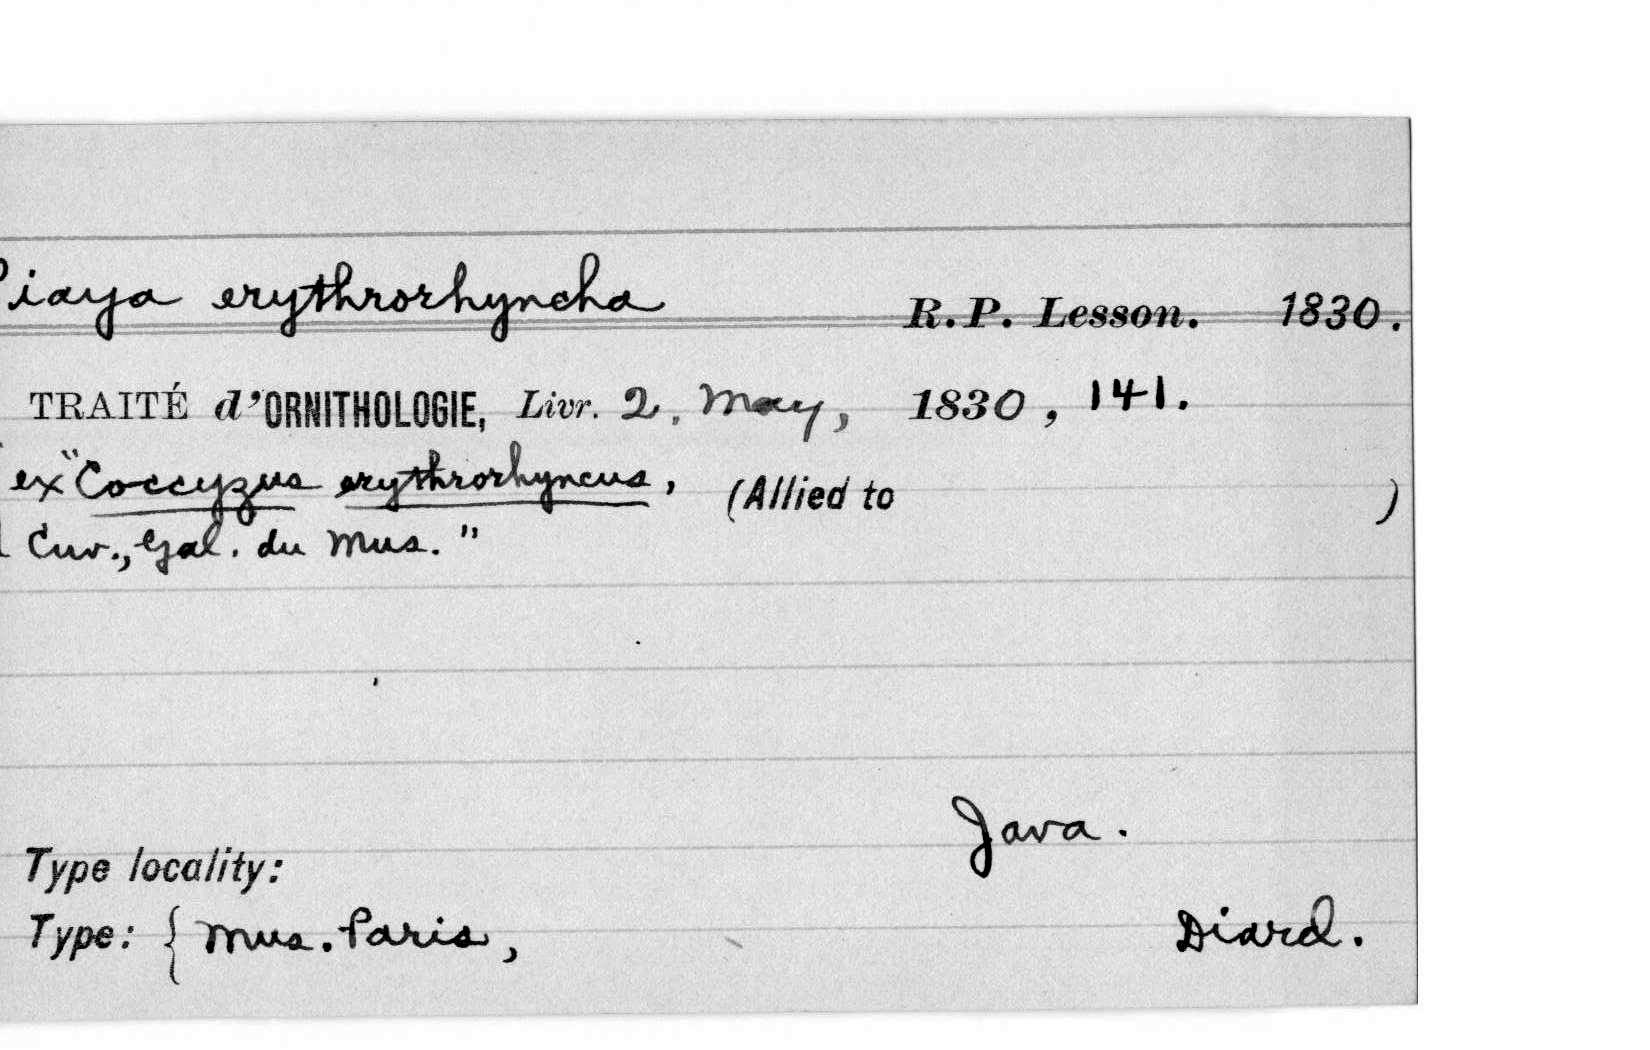 Piaya erythrorhyncha R. P. Lesson. 1830.
TRAITÉ d'ORNITHOLOGIE, Livr. 2, May, 1830, 141.
ex "Coccyzus erythrorhyncus, (Allied to )
Cuv., Gal. du Mus."
Java.
Type locality:
Type: { Mus. Paris, Diard.